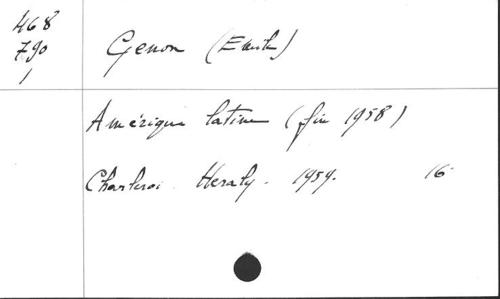 468
790
1
Genon (Emile)
Amérique latine (fin 1958)
Charleroi. Heraly. 1959. 16